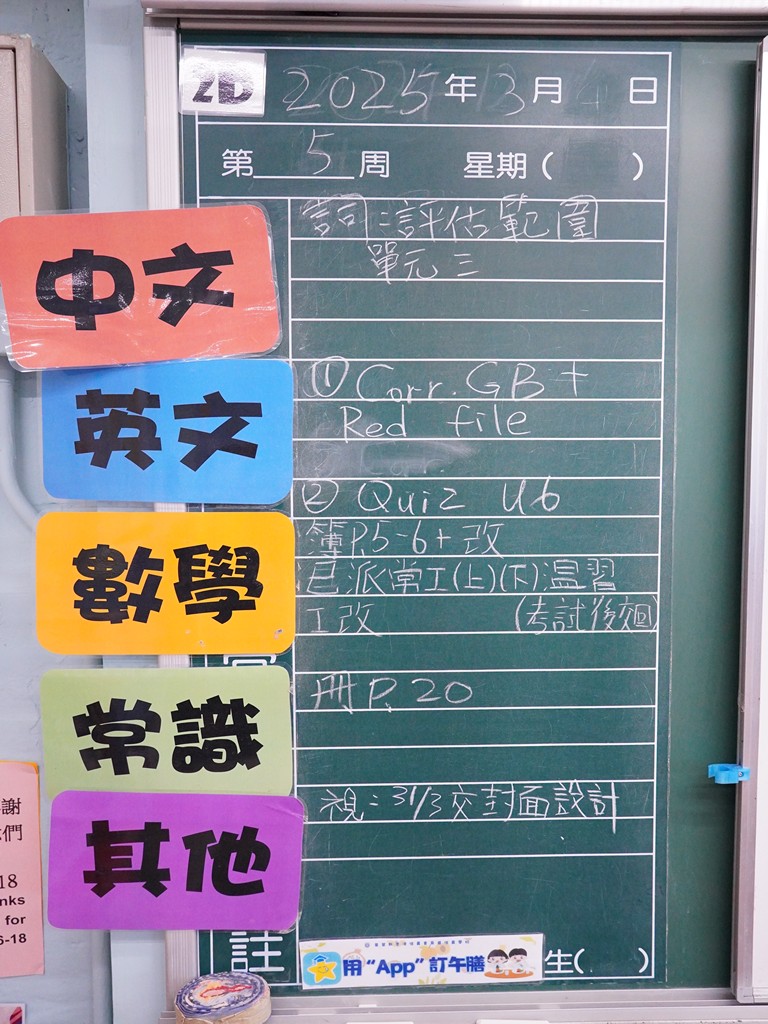 2D
2025年3月 日
第5周 星期( )
中文
詞:評估範圍
單元三
英文
① Corr. GB +
Red file
② Quiz U6
數學
簿P.5-6+改
已派常工(上)(下)温習
工改 (考試後交回)
常識
冊P.20
其他
視:31/3交封面設計
註
用“App”訂午膳
生( )
謝
們
18
nks
for
6-18